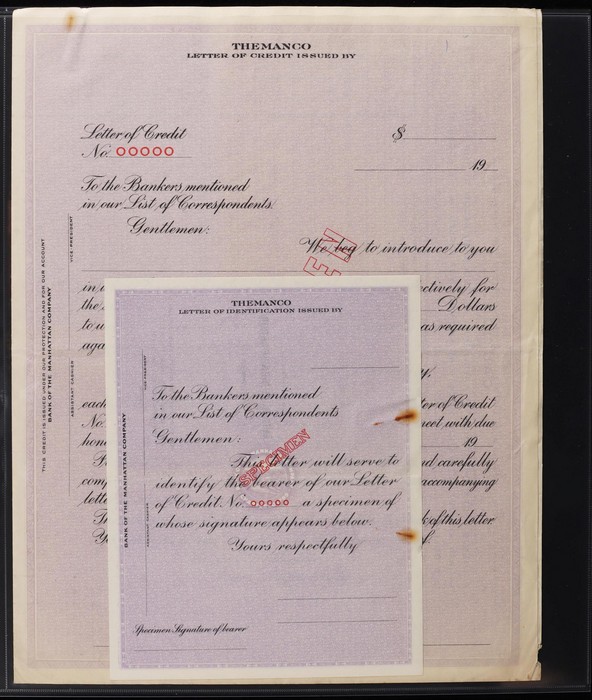 THEMANCO
LETTER OF CREDIT ISSUED BY
Letter of Credit
No. 00000
$
19
To the Bankers mentioned
in our List of Correspondents.
Gentlemen:
We beg to introduce to you
for
the Dollars
as required
each Letter of Credit
No. meet with due
19
and carefully
accompanying
of this letter
VICE PRESIDENT
ASSISTANT CASHIER
THIS CREDIT IS ISSUED UNDER OUR PROTECTION AND FOR OUR ACCOUNT
BANK OF THE MANHATTAN COMPANY
THEMANCO
LETTER OF IDENTIFICATION ISSUED BY
To the Bankers mentioned
in our List of Correspondents
Gentlemen:
SPECIMEN
This letter will serve to
identify the bearer of our Letter
of Credit No. 00000 a specimen of
whose signature appears below.
Yours respectfully
VICE PRESIDENT
BANK OF THE MANHATTAN COMPANY
Specimen Signature of bearer